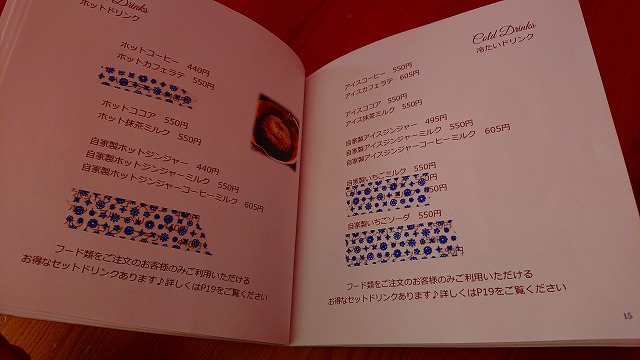 Drinks
ホットドリンク
ホットコーヒー 440円
ホットカフェラテ 550円
ホットココア 550円
ホット抹茶ミルク 550円
自家製ホットジンジャー 440円
自家製ホットジンジャーミルク 550円
自家製ホットジンジャーコーヒーミルク 605円
フード類をご注文のお客様のみご利用いただける
お得なセットドリンクあります♪詳しくはP19をご覧ください
Cold Drinks
冷たいドリンク
アイスコーヒー 550円
アイスカフェラテ 605円
アイスココア 550円
アイス抹茶ミルク 550円
自家製アイスジンジャー 495円
自家製アイスジンジャーミルク 550円
自家製アイスジンジャーコーヒーミルク 605円
自家製いちごミルク 550円
自家製いちごソーダ 550円
フード類をご注文のお客様のみご利用いただける
お得なセットドリンクあります♪詳しくはP19をご覧ください
15